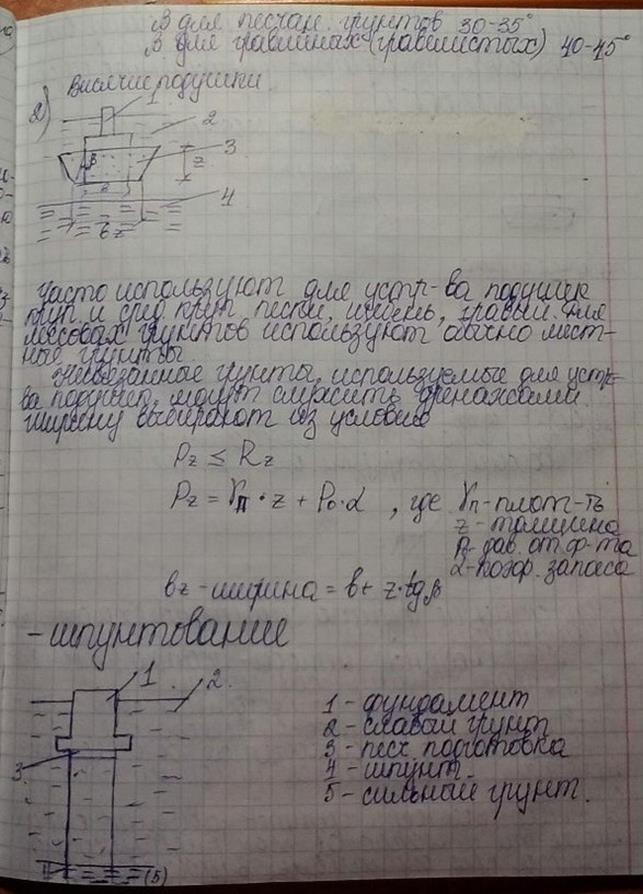 β для песчан. грунтов 30-35°
β для гравийных (гравелистых) 40-45°
Висячие подушки
2)
1
2
3
4
β
z
в
bz
Часто используют для устр-ва подушек
круп. и сред. круп. пески, щебень, гравий. Для
лёссовых грунтов используют обычно мест-
ные грунты.
Несвязанные грунты, используемые для устр-
ва подушек, могут служить дренажами.
Ширину выбирают из условия
Pz ≤ Rz
Pz = γп · z + P0 · α , где γп - плот-ть
z - толщина
P0 - дав. от ф-та
α - коэф. запаса
bz - ширина = b + z · tgβ
- шпунтование
1
2
3
4
(5)
1 - фундамент
2 - слабый грунт
3 - песч. подготовка
4 - шпунт
5 - сильный грунт.